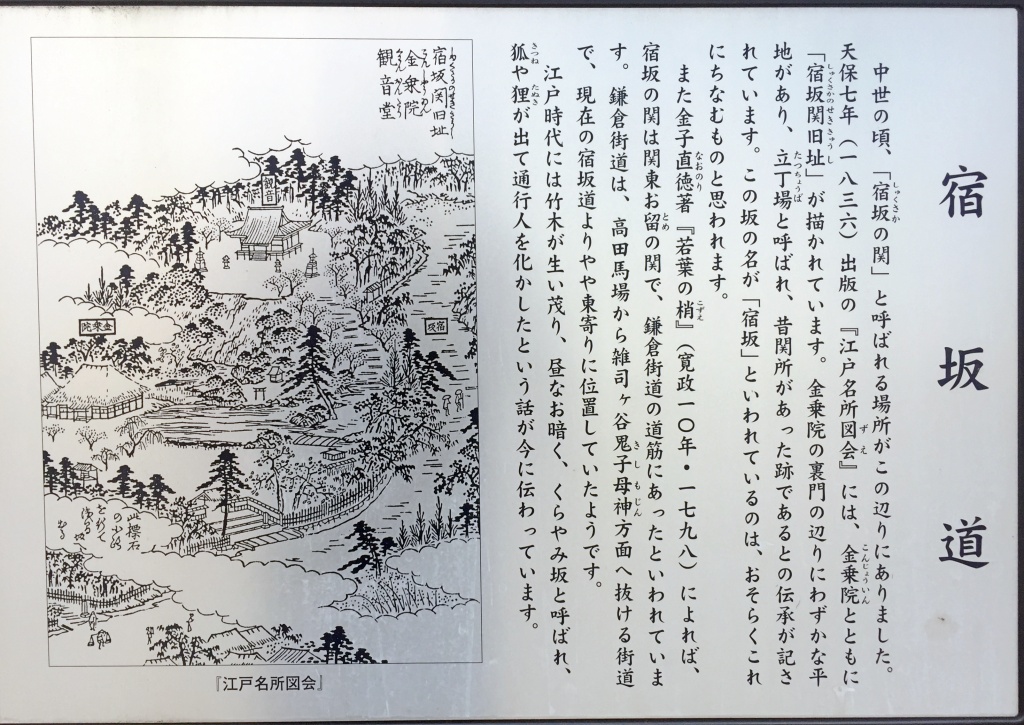 宿坂道
中世の頃、「宿坂の関」と呼ばれる場所がこの辺りにありました。
天保七年（一八三六）出版の『江戸名所図会』には、金乗院とともに
「宿坂関旧址」が描かれています。金乗院の裏門の辺りにわずかな平
地があり、立丁場と呼ばれ、昔関所があった跡であるとの伝承が記さ
れています。この坂の名が「宿坂」といわれているのは、おそらくこれ
にちなむものと思われます。
また金子直徳著『若葉の梢』（寛政一〇年・一七九八）によれば、
宿坂の関は関東お留の関で、鎌倉街道の道筋にあったといわれていま
す。鎌倉街道は、高田馬場から雑司ヶ谷鬼子母神方面へ抜ける街道
で、現在の宿坂道よりやや東寄りに位置していたようです。
江戸時代には竹木が生い茂り、昼なお暗く、くらやみ坂と呼ばれ、
狐や狸が出て通行人を化かしたという話が今に伝わっています。
宿坂関旧址
金乗院
観音堂
観音
金乗院
宿坂
『江戸名所図会』